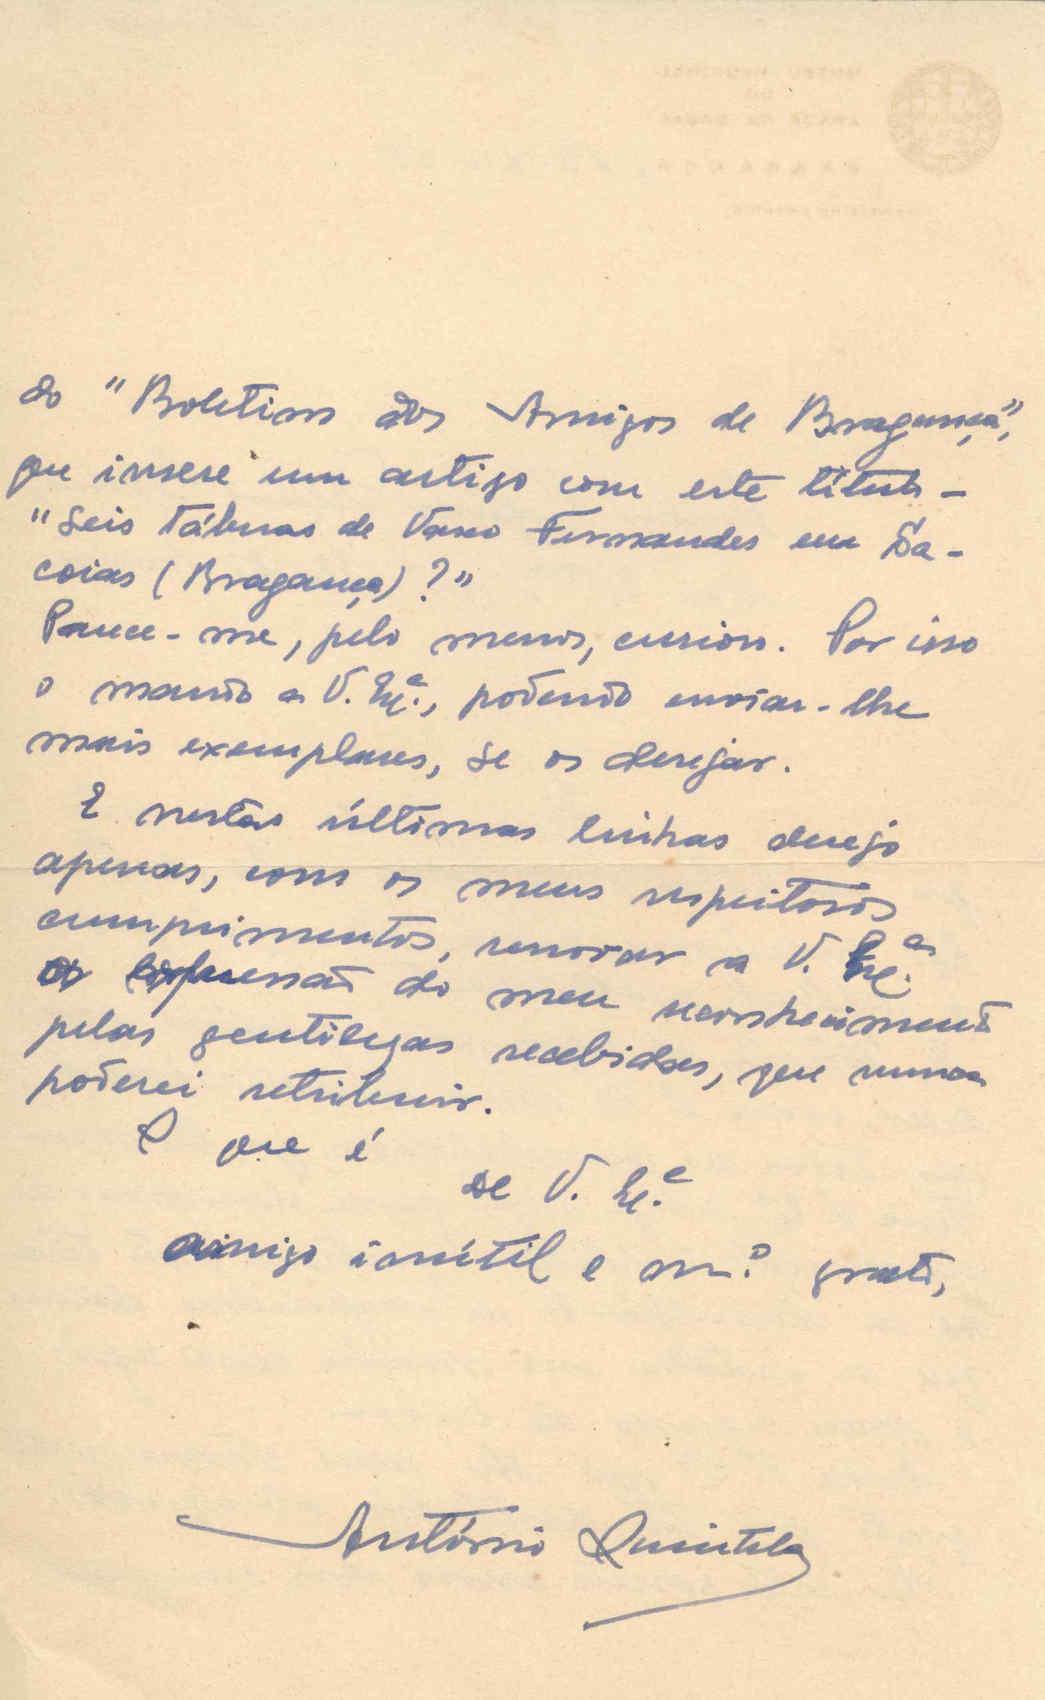 do "Boletim dos Amigos de Bragança",
que insere um artigo com este título -
"Seis Tábuas de Vasco Fernandes em Sa-
coias (Bragança)?"
Parece-me, pelo menos, curioso. Por isso
o mando a V. Exª., podendo enviar-lhe
mais exemplares, se os desejar.
E nestas últimas linhas desejo
apenas, com os meus respeitosos
cumprimentos, renovar a V. Exª.
a expressão do meu reconhecimento
pelas gentilezas recebidas, que nunca
poderei retribuir.
O que é
de V. Exª.
amigo inútil e m.º grato,
António Quintela